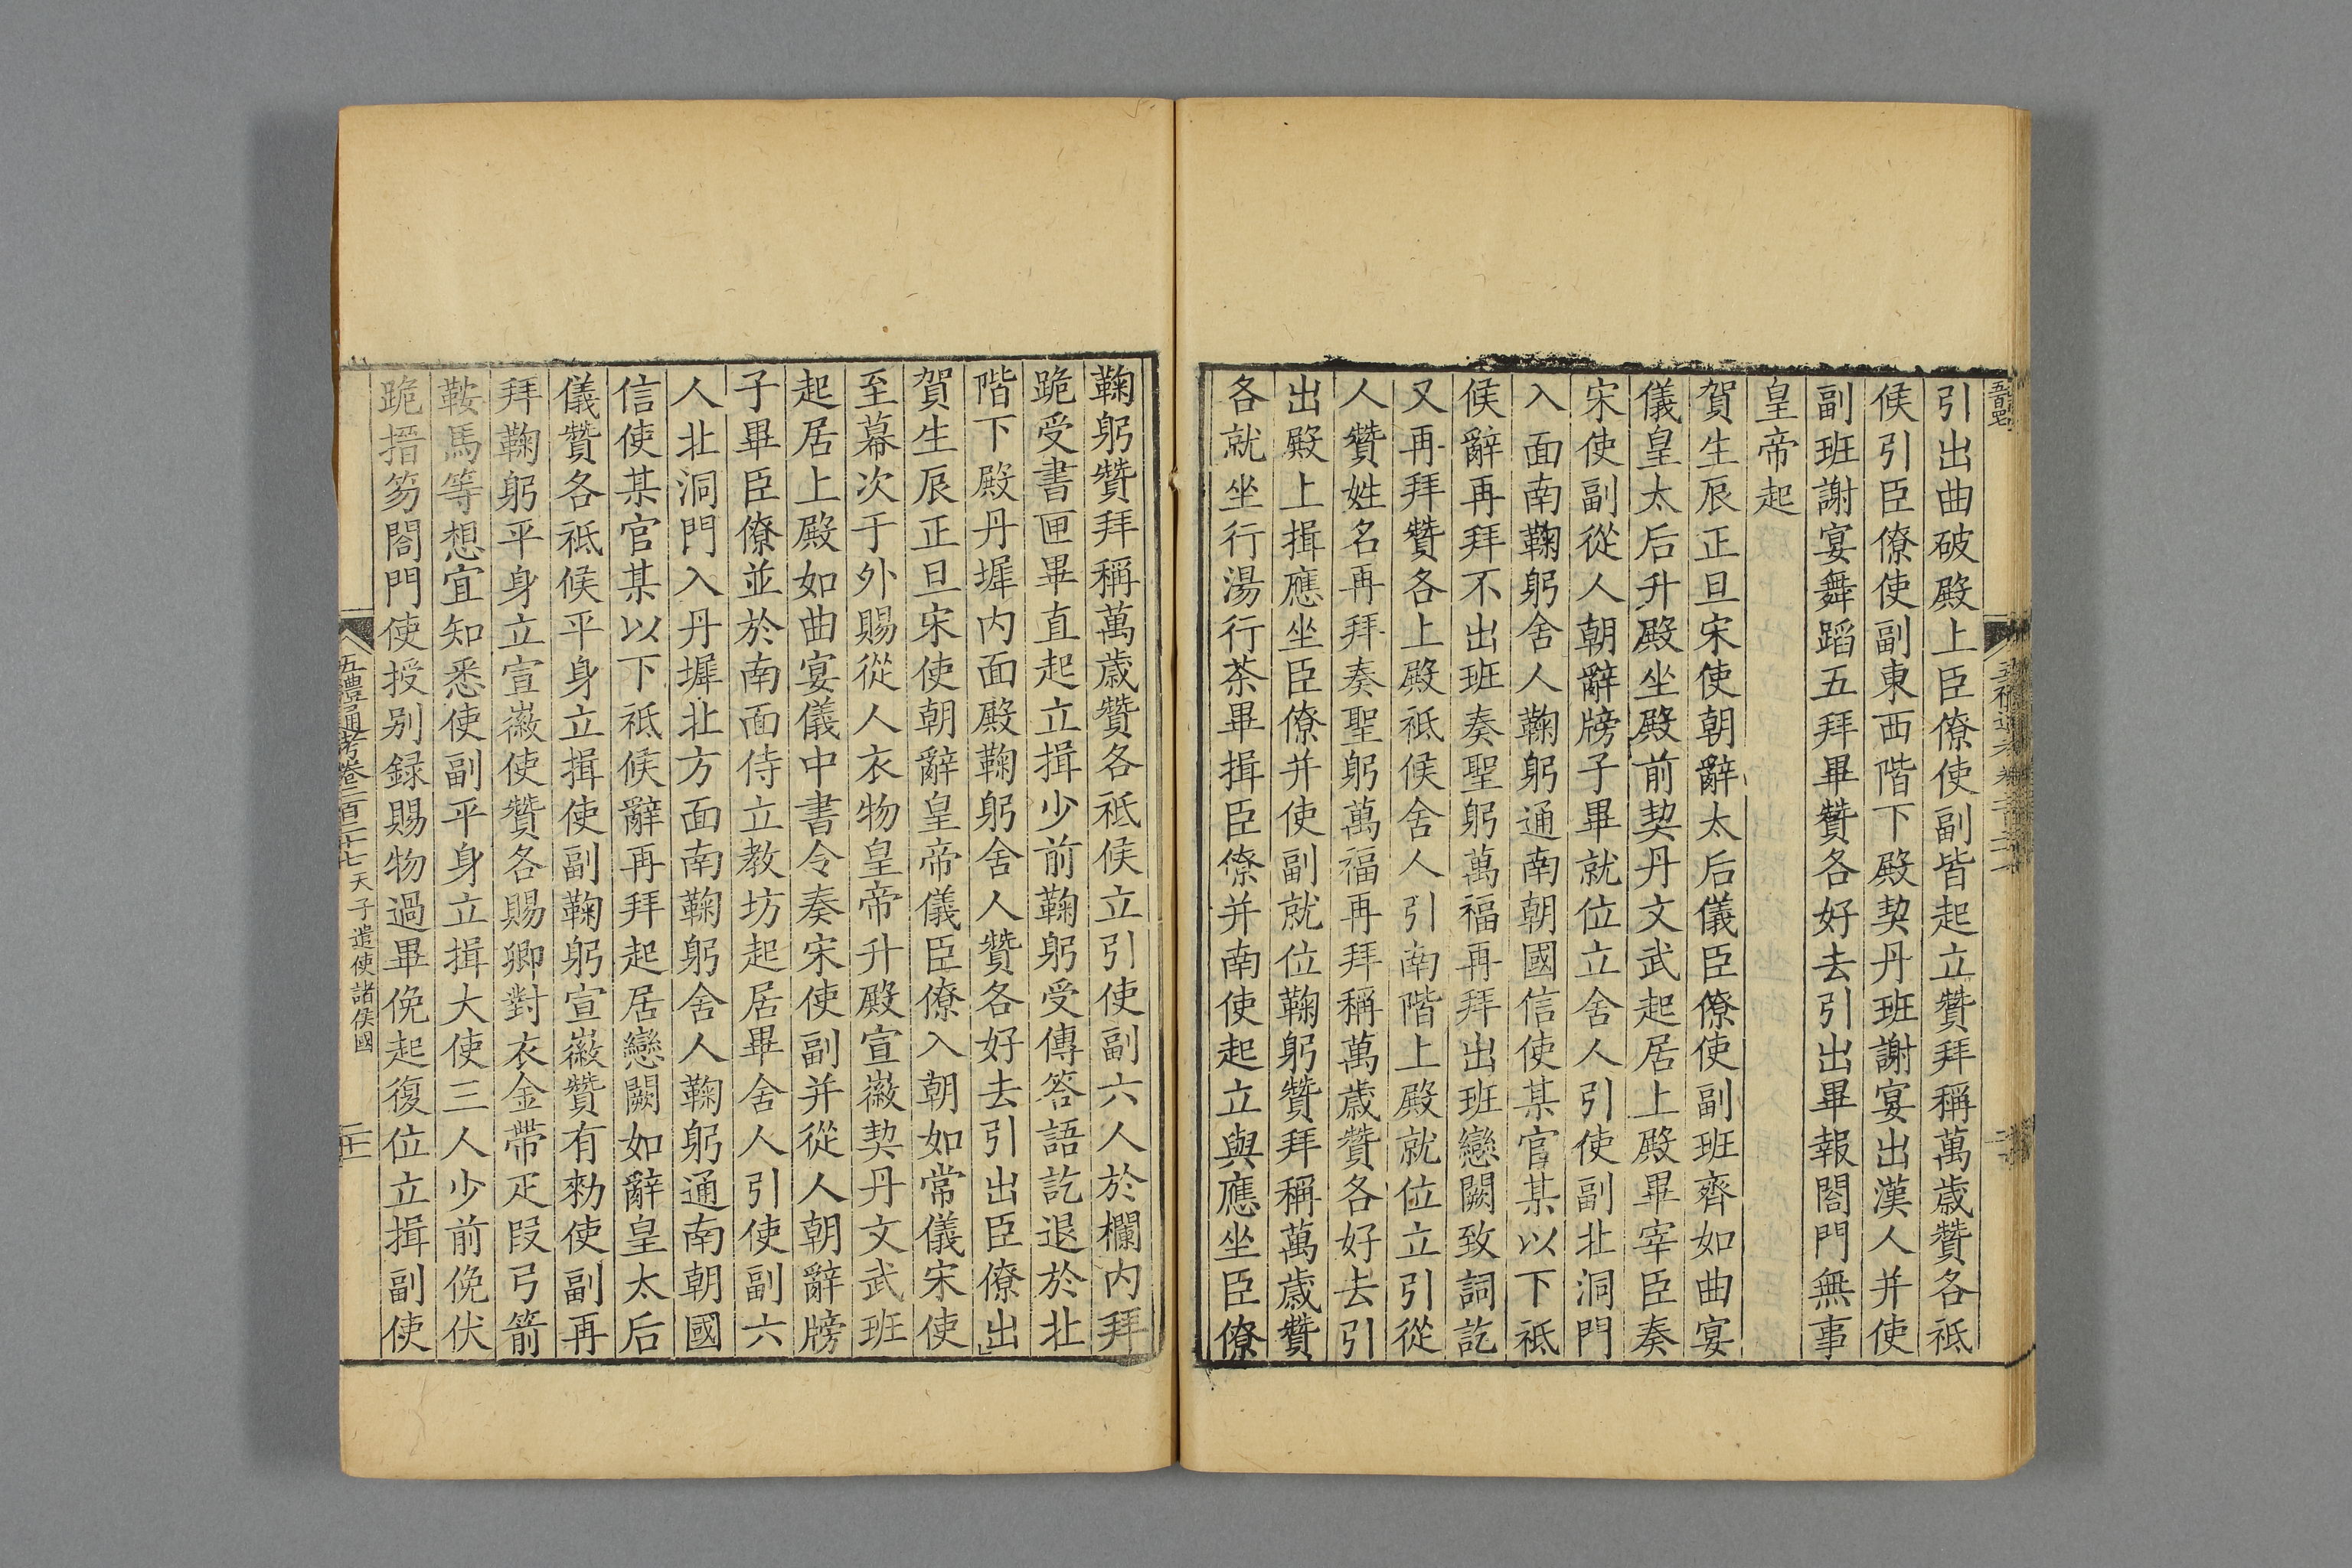 引出曲破殿上臣僚使副皆起立贊拜稱萬歲贊各祗
候引臣僚使副東西階下殿契丹班謝宴出漢人并使
副班謝宴舞蹈五拜畢贊各好去引出畢報閤門無事
皇帝起
賀生辰正旦宋使朝辭太后儀臣僚使副班齊如曲宴
儀皇太后升殿坐殿前契丹文武起居上殿畢宰臣奏
宋使副從人朝辭牓子畢就位立舍人引使副北洞門
入面南鞠躬舍人鞠躬通南朝國信使某官某以下祗
候辭再拜不出班奏聖躬萬福再拜出班戀闕致詞訖
又再拜贊各上殿祗候舍人引南階上殿就位立引從
人贊姓名再拜奏聖躬萬福再拜稱萬歲贊各好去引
出殿上揖應坐臣僚并使副就位鞠躬贊拜稱萬歲贊
各就坐行湯行茶畢揖臣僚并南使起立與應坐臣僚
鞠躬贊拜稱萬歲贊各祗候立引使副六人於欄內拜
跪受書匣畢直起立揖少前鞠躬受傳答語訖退於北
階下殿丹墀內面殿鞠躬舍人贊各好去引出臣僚出
賀生辰正旦宋使朝辭皇帝儀臣僚入朝如常儀宋使
至幕次于外賜從人衣物皇帝升殿宣徽契丹文武班
起居上殿如曲宴儀中書令奏宋使副并從人朝辭牓
子畢臣僚並於南面侍立教坊起居畢舍人引使副六
人北洞門入丹墀北方面南鞠躬舍人鞠躬通南朝國
信使某官某以下祗候辭再拜起居戀闕如辭皇太后
儀贊各祗候平身立揖使副鞠躬宣徽贊有勑使副再
拜鞠躬平身立宣徽使贊各賜卿對衣金帶疋叚弓箭
鞍馬等想宜知悉使副平身立揖大使三人少前俛伏
跪搢笏閤門使授别録賜物過畢俛起復位立揖副使
五禮通考卷二百二十七 天子遣使諸侯國 二十一